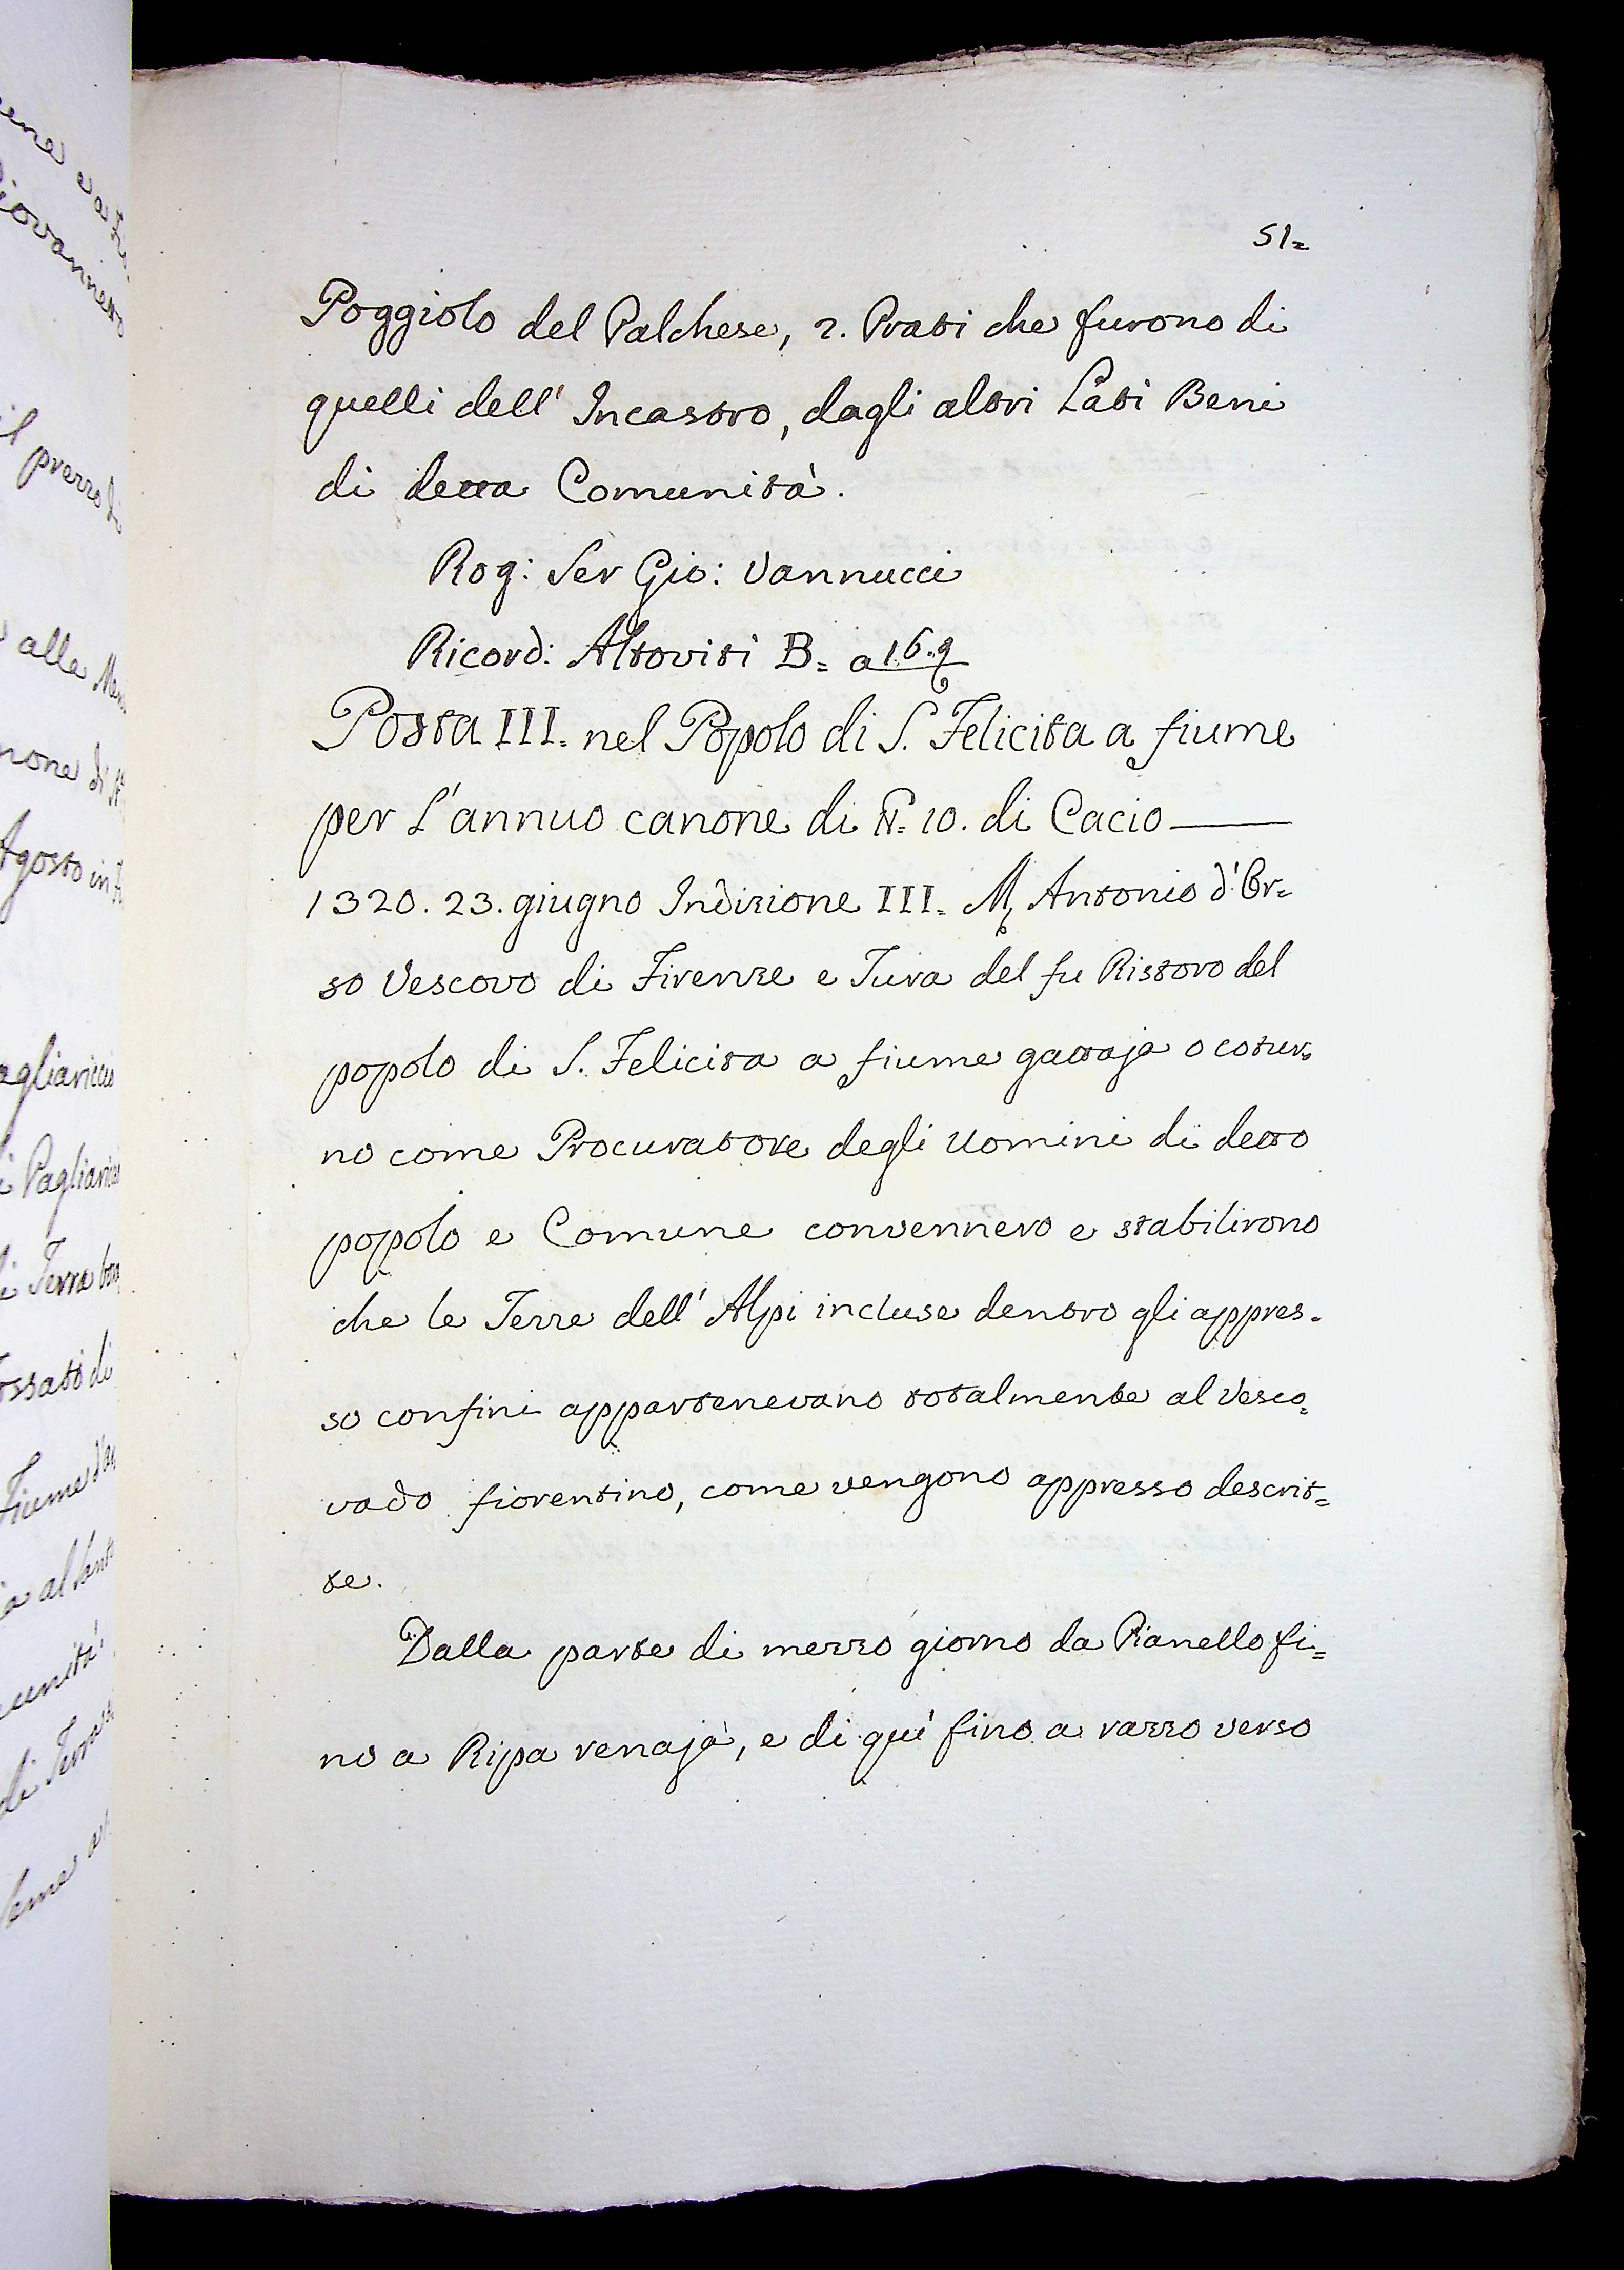 51=
Poggiolo del Palchese, 2. Prati che furono di
quelli dell' Incastro, dagli altri Lati Beni
di detta Comunità.
Rog: Ser Gio: Vannucci
Ricord: Altoviti B= a 169
Posta III. nel Popolo di S. Felicita a fiume
per L'annuo canone di N.= 10. di Cacio
1320. 23. giugno Indizione III= M. Antonio d'Or=
so Vescovo di Firenze e Tura del fu Ristoro del
popolo di S. Felicita a fiume gattaja o cotur=
no come Procuratore degli Uomini di detto
popolo e Comune convennero e stabilirono
che le Terre dell' Alpi incluse dentro gli appres=
so confini appartenevano totalmente al Vesco=
vado fiorentino, come vengono appresso descrit=
te.
Dalla parte di mezzo giorno da Pianello fi=
no a Ripa renaja, e di quì fino a razzo verso
il prezzo di
alla
none di
Agosto in
Pagliaricc
di Terra
Fiume